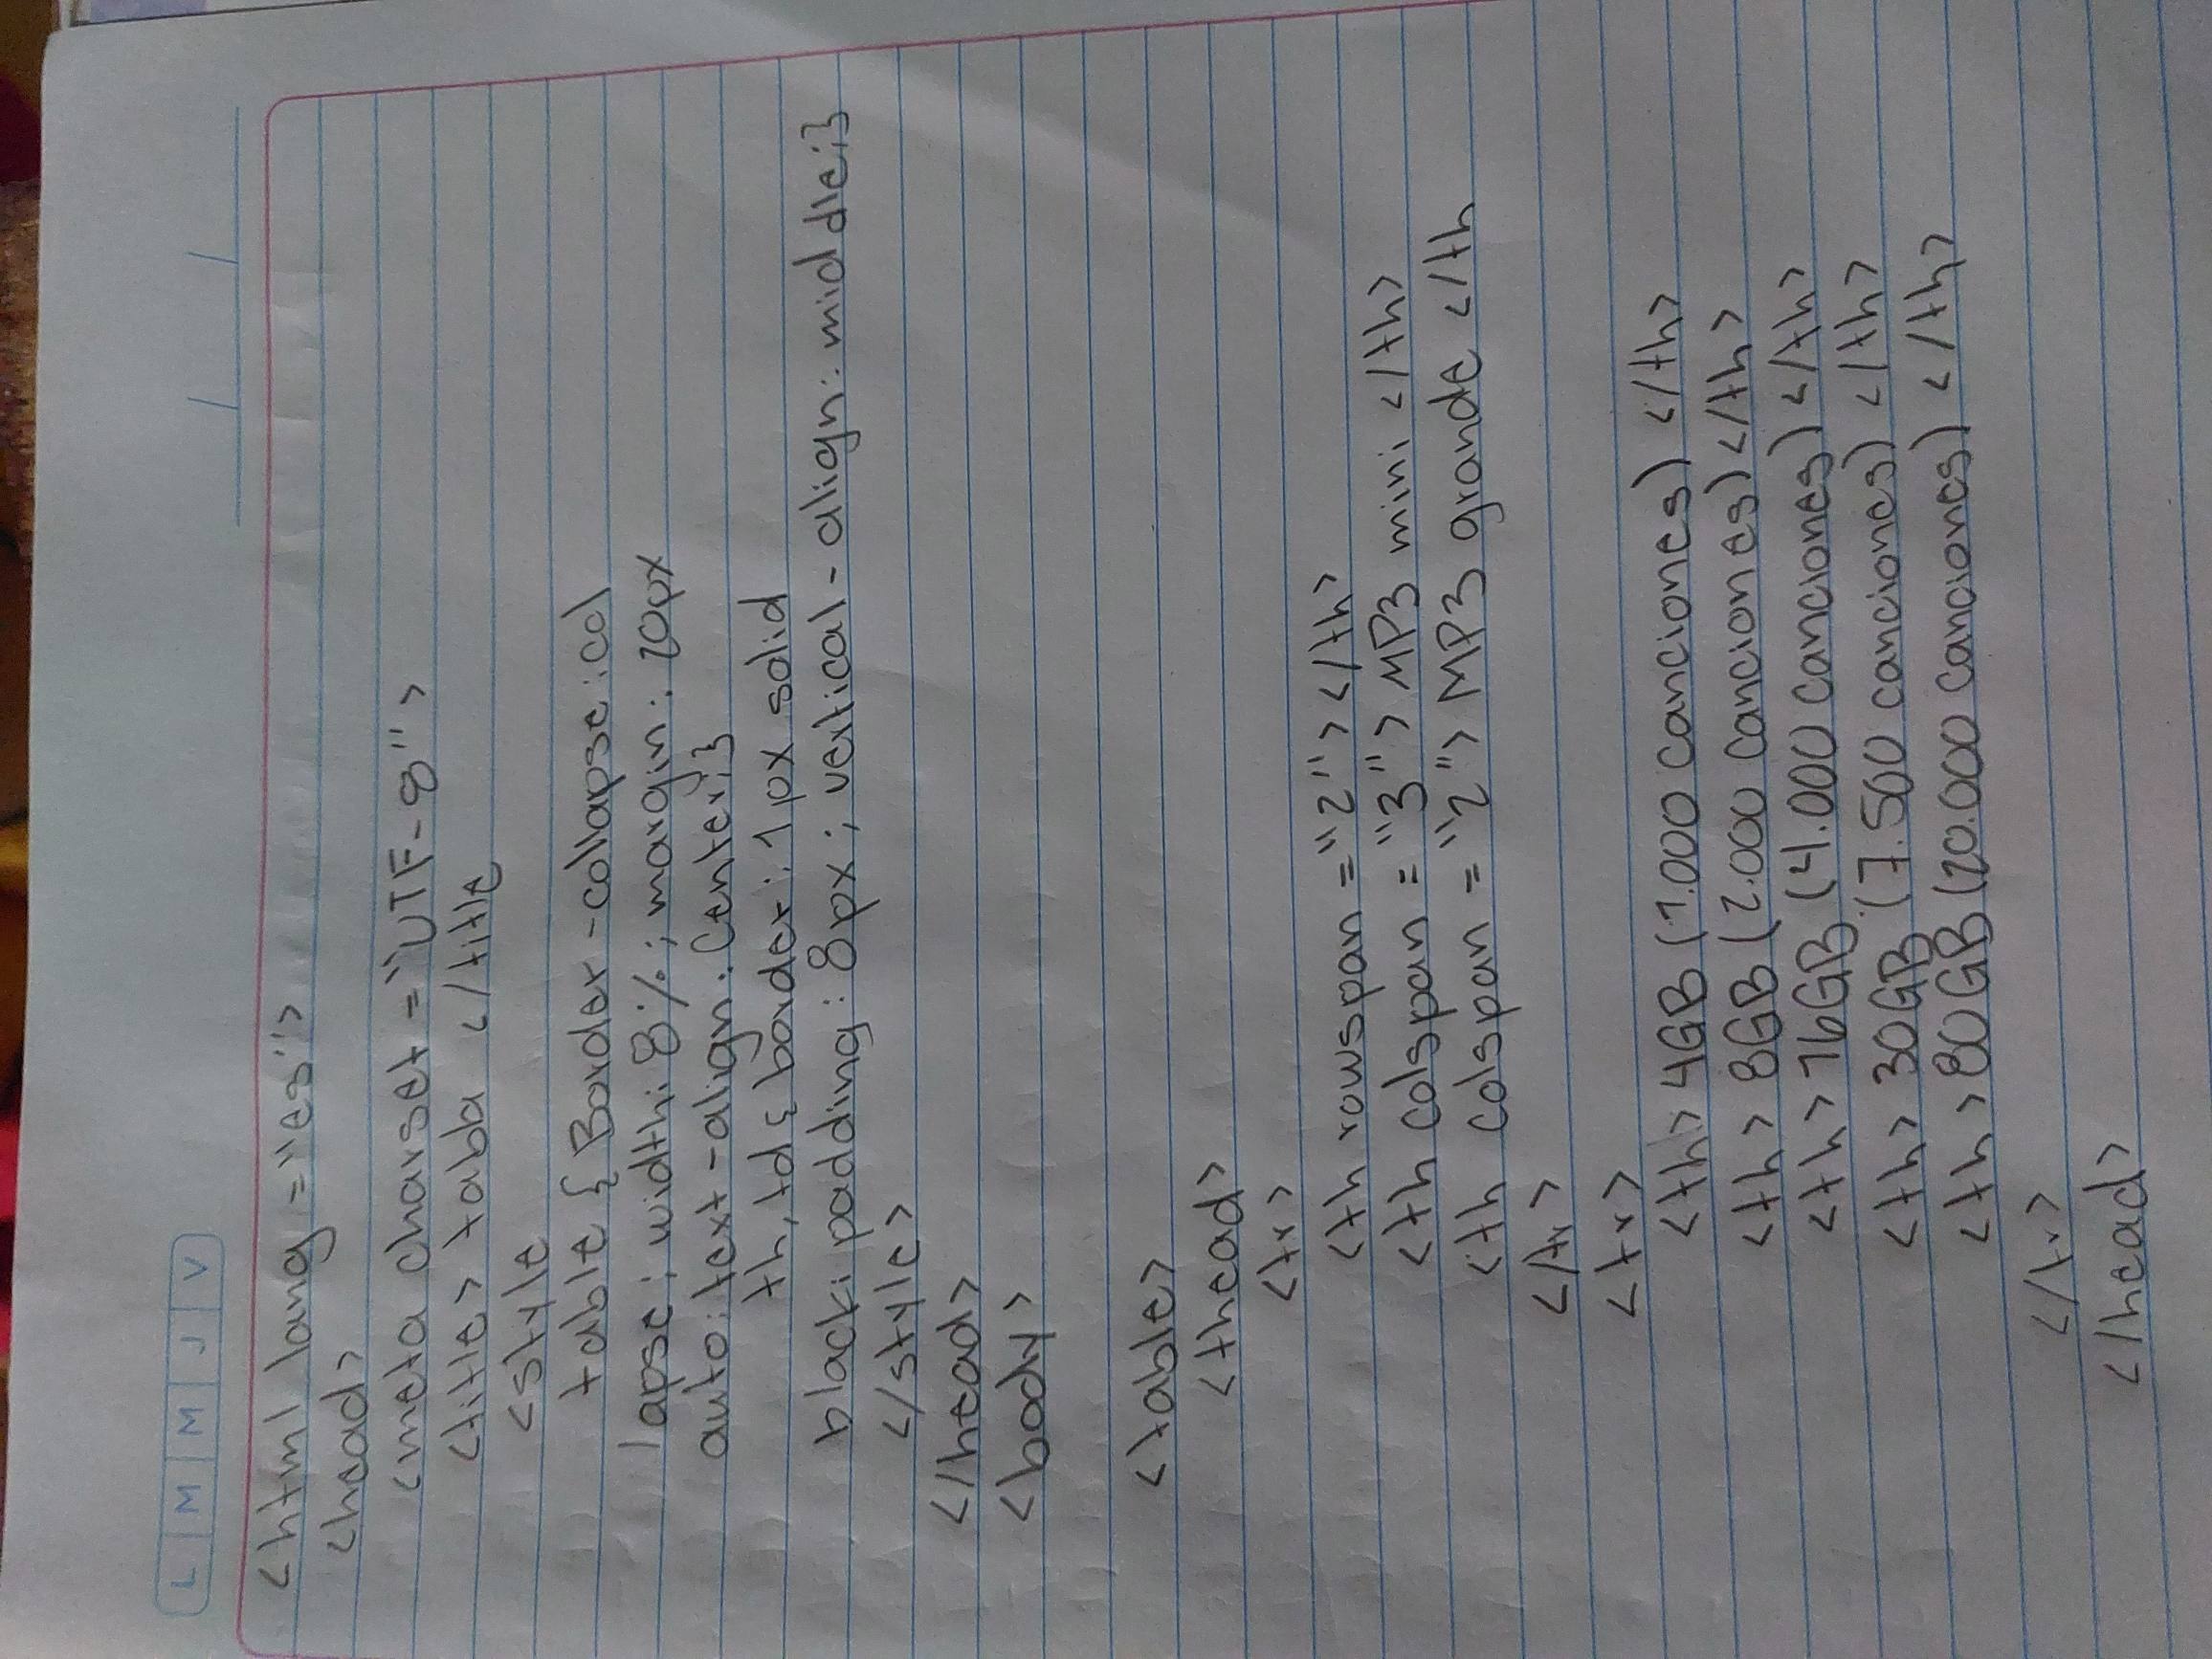 L M M J V
<html lang="es">
<head>
<meta charset="UTF-8">
<title> taba </title
<style
table { Border-collapse:col
lapse; width:8%; margin: 20px
auto: text-align:Center;}
th, td { border: 1px solid
black; padding: 8px; vertical-align: middle;}
</style>
</head>
<body>
<table>
<thead>
<tr>
<th rowspan="2"></th>
<th colspan="3"> MP3 mini </th>
<th colspan="2"> MP3 grande </th
</tr>
<tr>
<th> 4GB (1.000 canciones) </th>
<th> 8GB (2.000 canciones) </th>
<th> 16GB (4.000 canciones) </th>
<th> 30GB (7.500 canciones) </th>
<th> 80GB (20.000 canciones) </th>
</tr>
</head>